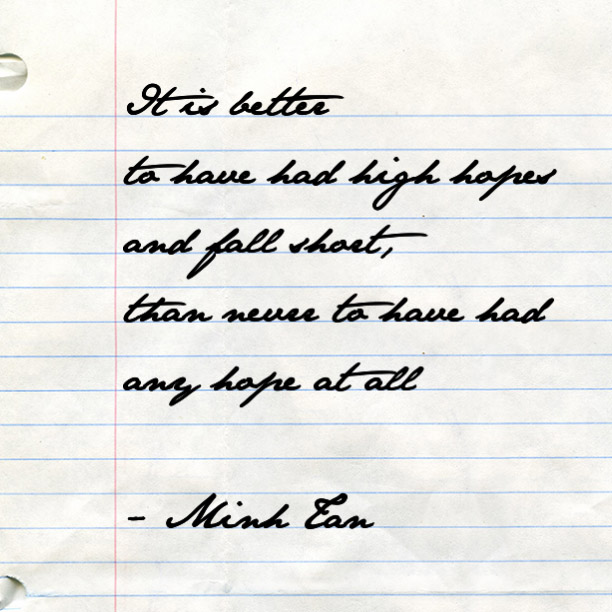 It is better
to have had high hopes
and fall short,
than never to have had
any hope at all
- Minh Tan